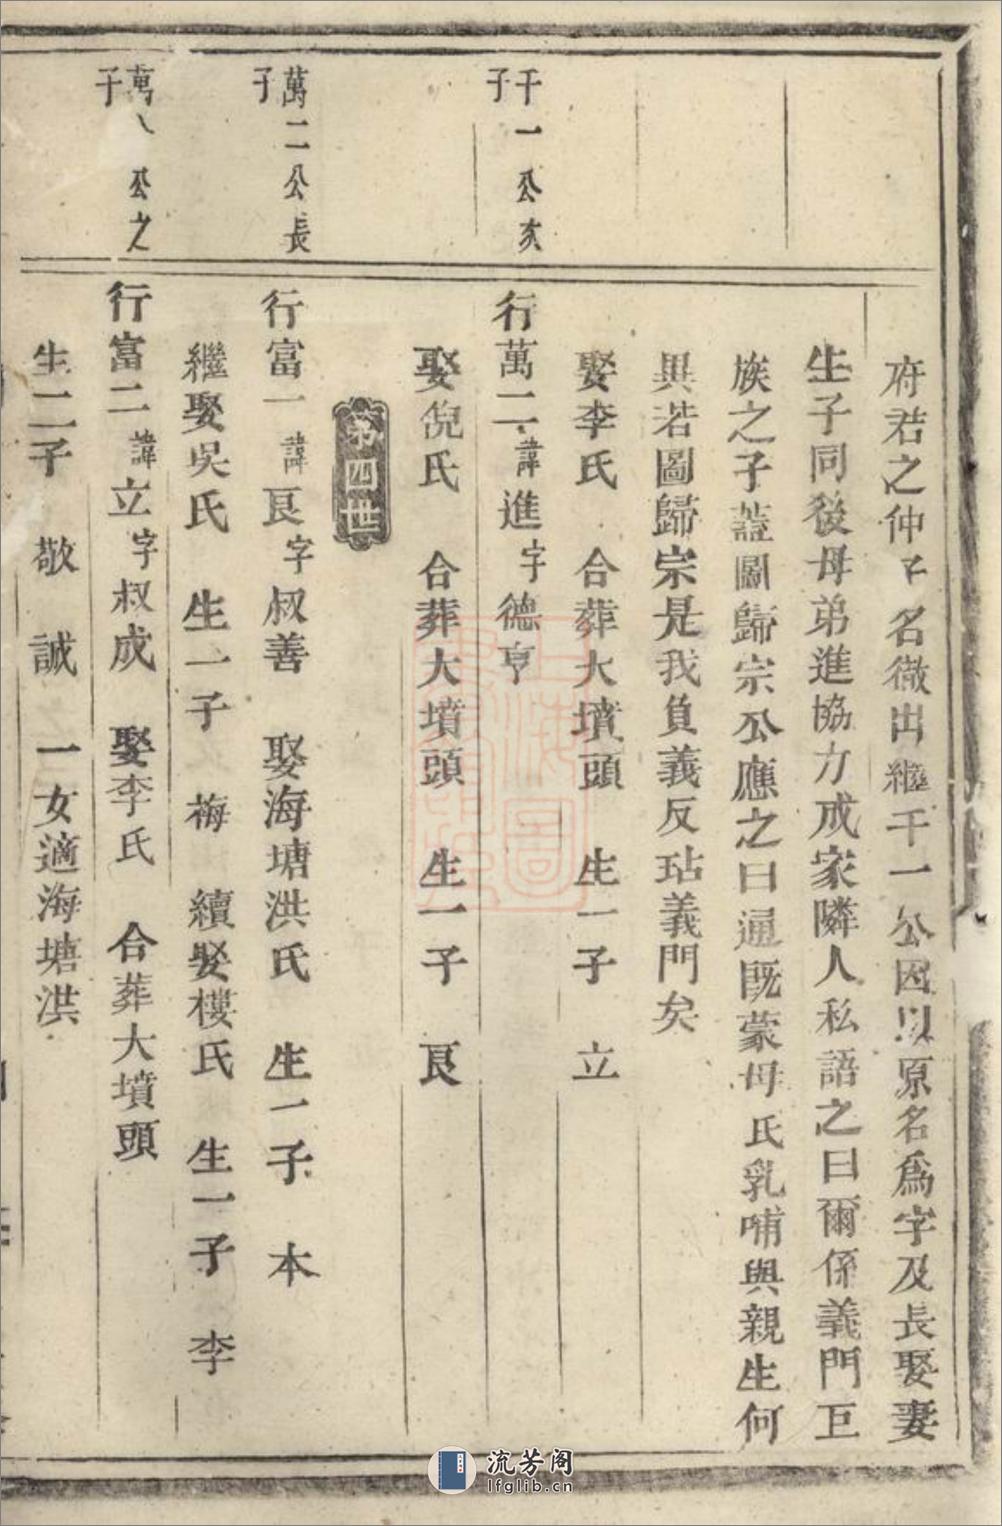 府君之仲子名徹出繼千一公因以原名爲字及長娶妻
生子同後母弟進協力成家隣人私語之曰爾係義門巨
族之子蓋圖歸宗公應之曰通旣蒙母氏乳哺與親生何
異若圖歸宗是我負義反玷義門矣
娶李氏 合葬大墳頭 生一子 立
千一公次子
行萬二諱進字德亨
娶倪氏 合葬大墳頭 生一子 良
第四世
萬二公長子
行富一諱良字叔善 娶海塘洪氏 生一子 本
繼娶吳氏 生一子 梅 續娶樓氏 生一子 李
萬 公之子
行富二諱立字叔成 娶李氏 合葬大墳頭
生二子 敬 誠 一女適海塘洪
流芳阁
lfglib.cn